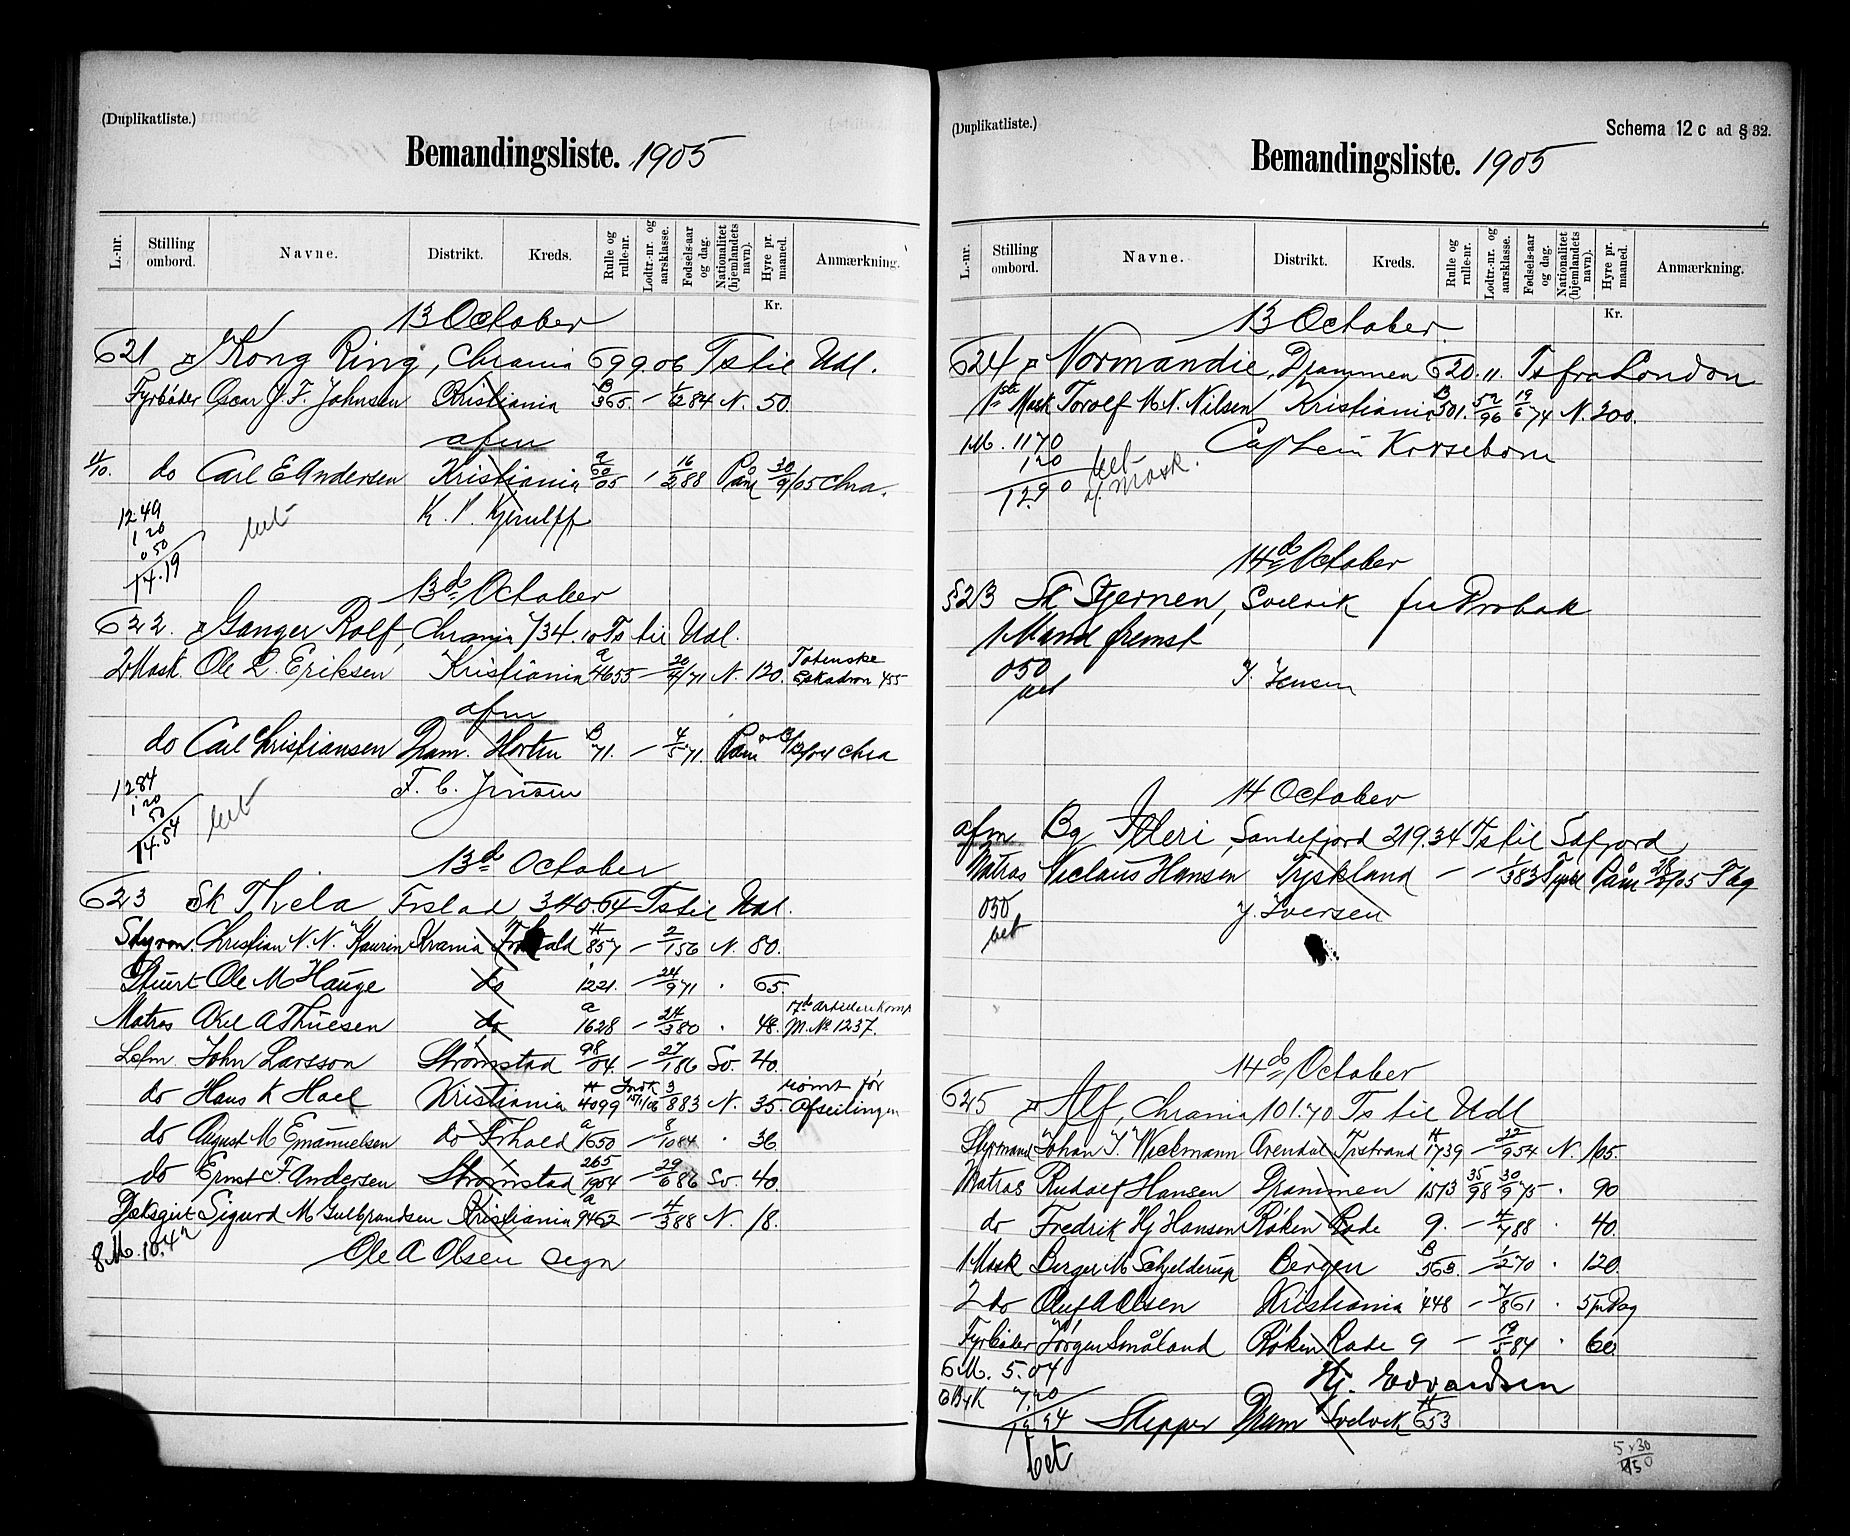 (Duplikatliste.)
Bemandingsliste. 1905
L.-nr. Stilling ombord. Navne. Distrikt. Kreds. Rulle og rulle-nr. Lodtr.-nr. og aarsklasse. Fødsels-aar og dag. Nationalitet (hjemlandets navn). Hyre pr. maaned. Anmærkning.
Kr.
13 October
621 Kong Ring, Chrania 699.06 Ts til Udl.
Fyrbøder Oscar J. F. Johnsen Kristiania B 365. – 1/2 84 N. 50.
afm
4/10. do Carl E Andersen Kristiania a 60/05 16/2 88 Paam 30/9/05 Chra.
12.49 K. V. Kjerulff
1 20 bet
0 50
14.19
13de October
622. Ganger Rolf, Chrania 734.10 Ts til Udl.
2 Mask. Ole L. Eriksen Kristiania a 4655 – 20/4/71 N. 120. Totenske
Eskadron 455
afm
do Carl Christiansen Dram. Horten B 71. – 4/5 71. Paam /04 Chra
12.84 F. C. Jensen
1.20 bet
50
14.54
13de October
623 Sk Thela Frstad 340.64 Ts til Udl.
Styrm. Christian N. N. Kaurin Krania H 857 – 2/1 56 N. 80.
Stuert Ole M Hauge do 1221. – 24/9 71 . 65.
Matros Axel A Thuesen do a 1628 – 24/3 80 . 48. 17de Artilleri Komp
M. No 1237.
Letm. John Larsson Strømstad 98/04. – 27/1 86 Sv. 40.
do Hans K Hoel Kristiania H 4099 3/8 83 N. 35. rømt før
Afseilingen
do August M Emanuelsen do Frhald a 1650 – 8/10 84 . 36
do Ernst F. Andersen Strømstad 265/1904 – 29/6 86 Sv. 40.
Dæksgut Sigurd M Gulbrandsen Kristiania a 9462 – 4/3 88 N. 18.
8 M. 10.42 Ole A Olsen segn
(Duplikatliste.)
Schema 12 c ad § 32.
Bemandingsliste. 1905
L.-nr. Stilling ombord. Navne. Distrikt. Kreds. Rulle og rulle-nr. Lodtr.-nr. og aarsklasse. Fødsels-aar og dag. Nationalitet (hjemlandets navn). Hyre pr. maaned. Anmærkning.
Kr.
13 October.
624 Normandie, Drammen 620.11. Ts fra London
1ste Mask Torolf M. N. Nilsen Kristiania B 501. 52/96 19/6 74 N. 200.
1 M. 11 70 Captein Korsebom
1 20 bet
12.90 af. Mask.
14de October
§23 Sk Stjernen, Svelvik fra Drøbak
1 Mand fremst
0 50 J. Jensen
bet
14 October
afm Bg Fleri, Sandefjord 219.34 Ts til Sdfjord
Matros Niclaus Hansen Tyskland – – 1/3 83 Tysk Paam /05 Fhg
0 50 J. Iversen
bet
14de October
625 Alf, Chrania 101.70 Ts til Udl
Styrmand Johan J. Wickmann Arendal Tristrand H 1739 – 22/9 54 N. 105.
Matros Rudolf Hansen Drammen 1513 35/98 30/9 75 . 90
do Fredrik Hj Hansen Røken Rode 9. – 4/7 88 . 40.
1 Mask Berger M Schjelderup Bergen B 363. – 1/2 70 . 120.
2 do Oluf A Olsen Kristiania 448 – 7/8 61 . 5 pr Dag
Fyrbøder Jørgen Småland Røken Rode 9 – 19/5 84 . 60.
6 M. 5.04 Hj. Edvardsen
7.20
12.24 Skipper Dram Svelvik H 653
bet
5 x 30
150